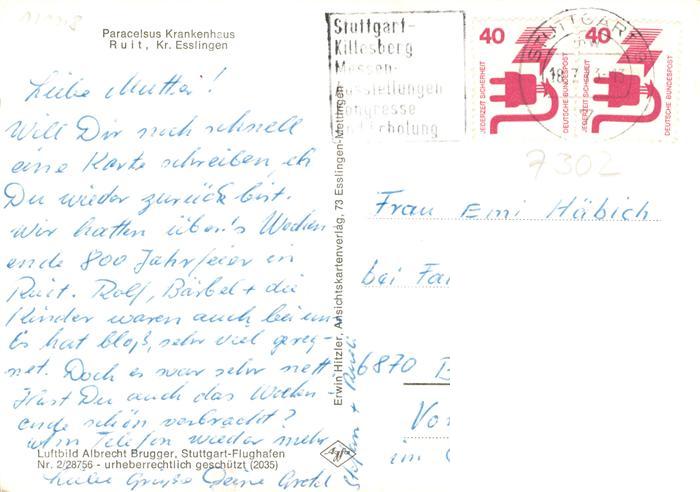 Paracelsus Krankenhaus
Ruit, Kr. Esslingen
Liebe Mutter!
Will Dir noch schnell
eine Karte schreiben, eh
Du wieder zurück bist.
Wir hatten über's Wochen
ende 800 Jahrfeier in
Ruit. Rolf, Bärbel + die
Kinder waren auch bei uns
Es hat bloß, sehr viel gereg-
net. Doch es war sehr nett
Hast Du auch das Wochen
ende schön verbracht?
Am Telefon wieder mehr
Liebe Grüße Deine Gretel
Stefan + Rudi
Luftbild Albrecht Brugger, Stuttgart-Flughafen
Nr. 2/28756 - urheberrechtlich geschützt (2035)
Erwin Hitzler, Ansichtskartenverlag, 73 Esslingen-Mettingen
Agfa
Stuttgart-
Killesberg
Messen-
Ausstellungen
Kongresse
Erholung
STUTTGART
18.7.
40
JEDERZEIT SICHERHEIT
DEUTSCHE BUNDESPOST
40
JEDERZEIT SICHERHEIT
DEUTSCHE BUNDESPOST
7302
Frau Emi Häbich
bei Fa
6870
Vo
im